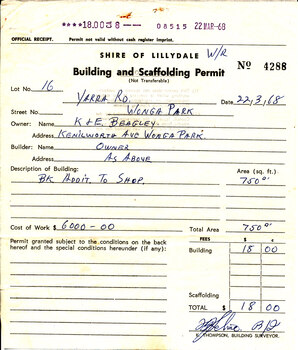 18.0008 - 08515 22 MAR-68
OFFICIAL RECEIPT. Permit not valid without cash register imprint.
SHIRE OF LILLYDALE W/R
Building and Scaffolding Permit Nº 4288
(Not Transferable)
Lot No. 16
YARRA RD.
Street No. WONGA PARK Date 22,3,68
Owner: Name K & E. BEAGLEY
Address KENILWORTH AVE WONGA PARK.
Builder: Name OWNER
Address AS ABOVE
Description of Building: Area (sq. ft.)
BK ADDIT. TO SHOP. 750
Cost of Work $ 6000-00 Total Area 750
Permit granted subject to the conditions on the back
hereof and the special conditions hereunder (if any):
FEES $ ¢
Building 18 00
Scaffolding
TOTAL $ 18 00
THOMPSON, BUILDING SURVEYOR.